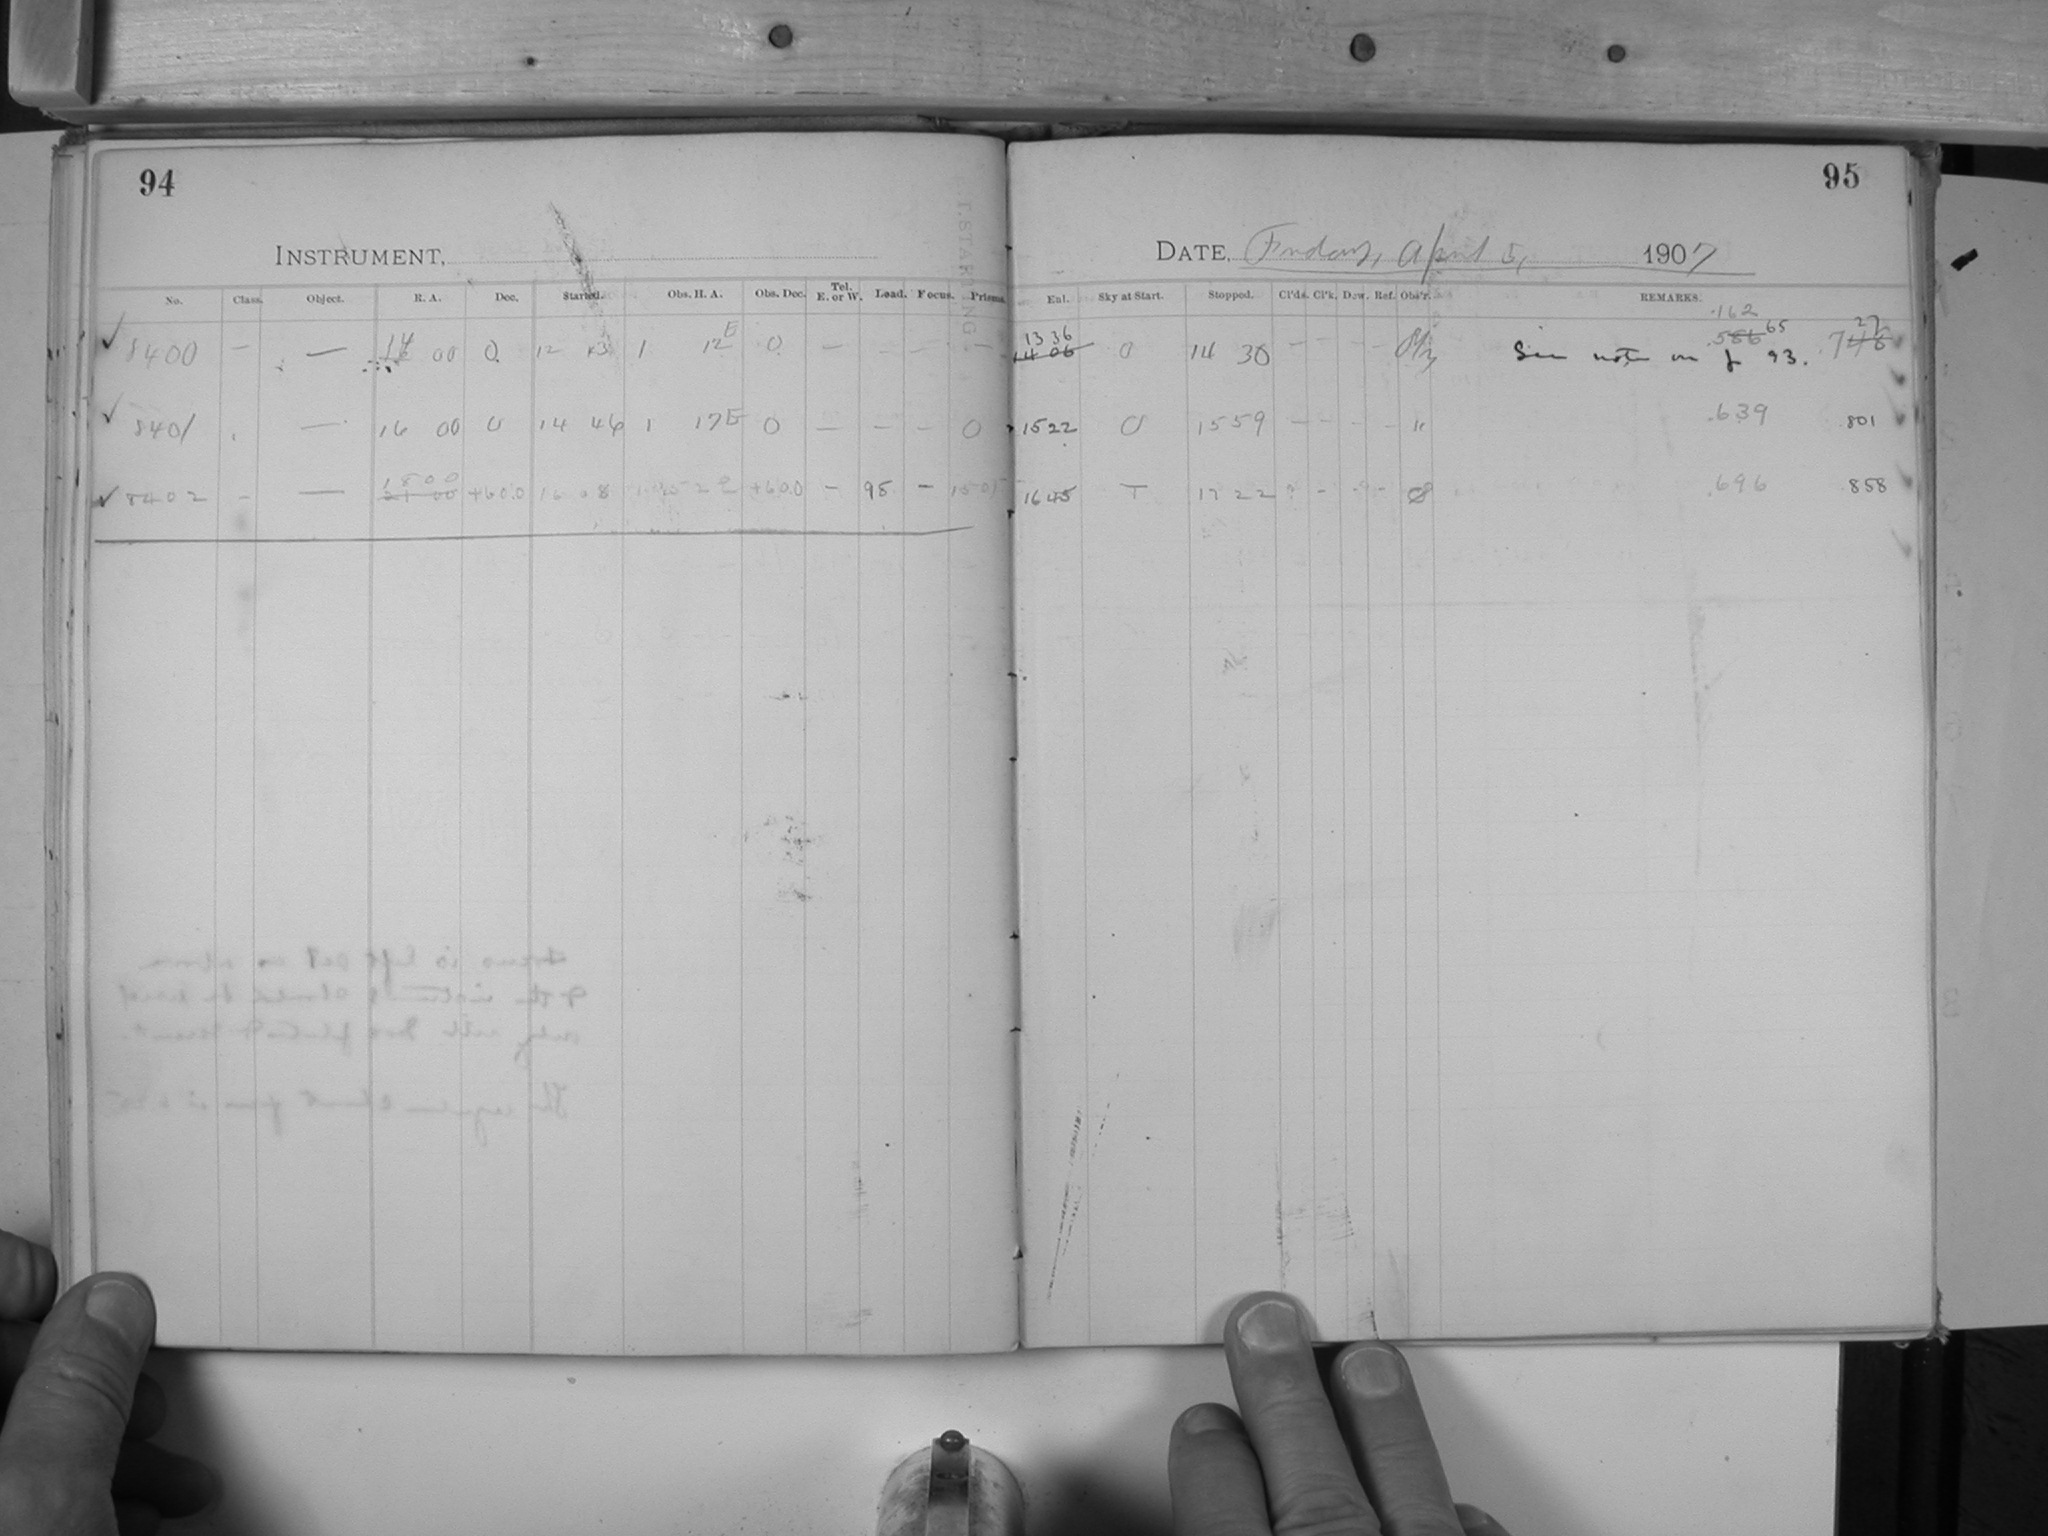 94
INSTRUMENT,
No. Class. Object. R. A. Dec. Started. Obs. H. A. Obs. Dec. Tel. E. or W. Load. Focus. Prisms.
✓ 8400 — — 14 00 0 12 43 1 12 E 0 — — — —
✓ 8401 — 16 00 0 14 46 1 17 E 0 — — — 0
✓ 8402 — — 18 00 21 00 +60.0 16 08 1 +60.0 — 95 —
95
DATE, Friday, April 5, 1907
Exl. Sky at Start. Stopped. Cl'ds. Cl'k. Dew. Ref. Obs'r. REMARKS.
13 36 .162
14 06 0 14 30 — — — — .586 65 27 748
See note on p 93.
15 22 0 15 59 — — — — " .639 .801
16 45 T 17 22 .696 .858